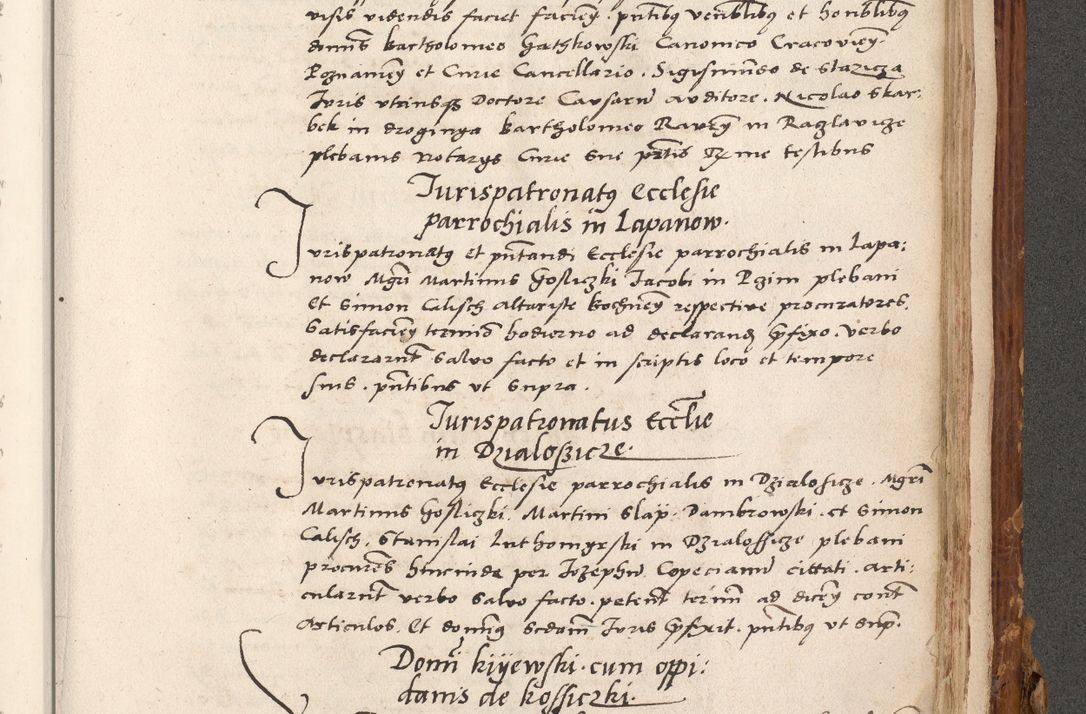 visis videndis faciet facieñ. pñtibꝫ venlibꝫ et honlibꝫ
domĩs Bartholomeo Gathkowski Canonico Cracovieñ.
Poznanieñ et Curie Cancellario. Sigismundo de Stazicza
Juris utriusqꝫ Doctore Causarũ auditore. Nicolao Skar:
bek in droginya Bartholomeo in Raczlavicze
plebanis notarys Curie Sue testibus
Jurispatronatꝰ Ecclesie
parrochialis in Lapanow.
Jurispatronatꝰ et pñtandi Ecclesie parrochialis in Lapa:
now Mgrĩ Martinus Gosliczki Jacobi in Rzim plebani
et Simon Calisch altariste Bochneñ respective procuratores.
Satisfacieñ termino hodierno ad declarandũ p̃fixo. verbo
declararũt salvo facto et in scriptis loco et tempore
suis. pñtibus ut supra.
Jurispatronatus Eccĩie
in Dzialoszicze.
Jurispatronatꝰ Ecclesie parrochialis in Dzialosicze. Mgrĩ
Martinus Gosliczki. Martini Slap. Dambrowski. et Simon
Calisch. Stanislai Luthomyrski in Dzialossicze plebani
procurẽs hincinde per Jozephũ Copecianũ cittati. arti:
cularũt verbo salvo facto. petent terĩm ad diceñ cont̃
articulos. Et domĩꝰ scdam Juris p̃fixit. pñtibꝫ ut sup.
Domĩ kijewski. cum oppi:
danis de kossiczki.